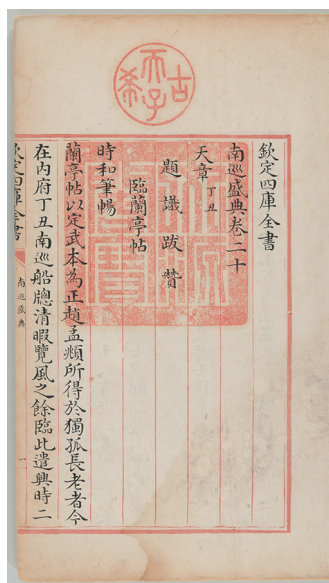 古希天子
欽定四庫全書
南巡盛典卷二十
天章丁丑
題識跋贊
臨蘭亭帖
時和筆暢
蘭亭帖以定武本為正趙孟頫所得於獨孤長老者今
在内府丁丑南巡船牕清暇覽風之餘臨此遣興時二
欽定四庫全書
南巡盛典
一